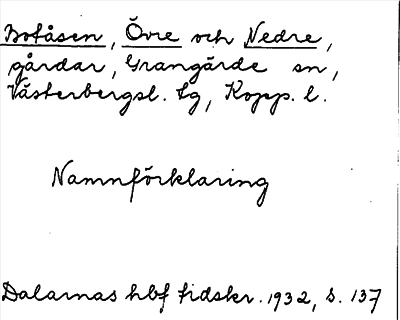 Bofåsen, Övre och Nedre,
gårdar, Grangärde sn,
Västerbergsl. tg, Kopp. l.
Namnförklaring
Dalarnas hbf tidskr. 1932, s. 137